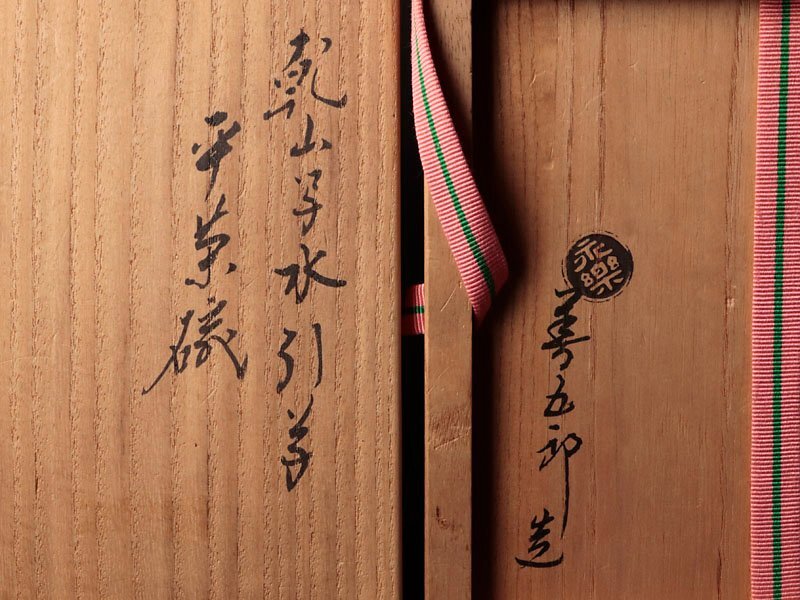 乾山写水引草
平茶碗
永樂
善五郎 造